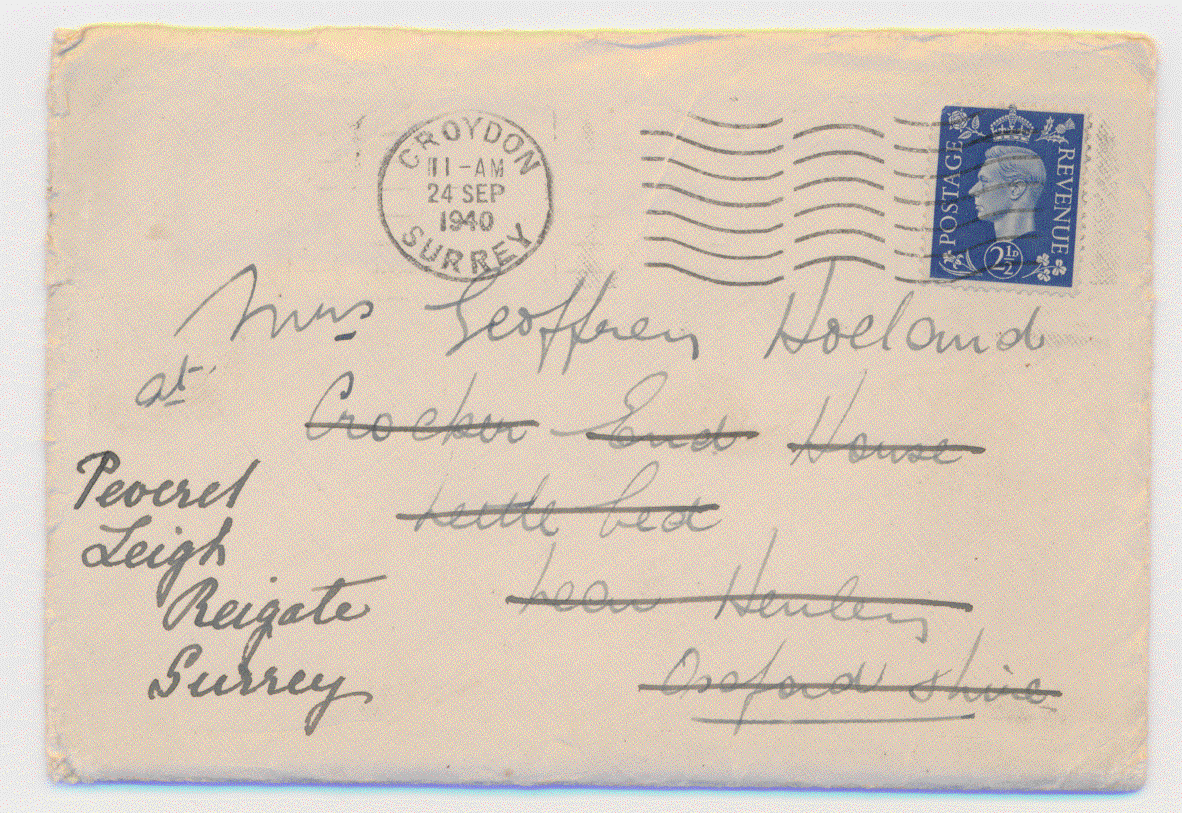 CROYDON
11-AM
24 SEP
1940
SURREY
POSTAGE
REVENUE
2½D
Mrs Geoffrey Holland
at
Crocker End House
Nettlebed
near Henley
Oxfordshire
Peverel
Leigh
Reigate
Surrey